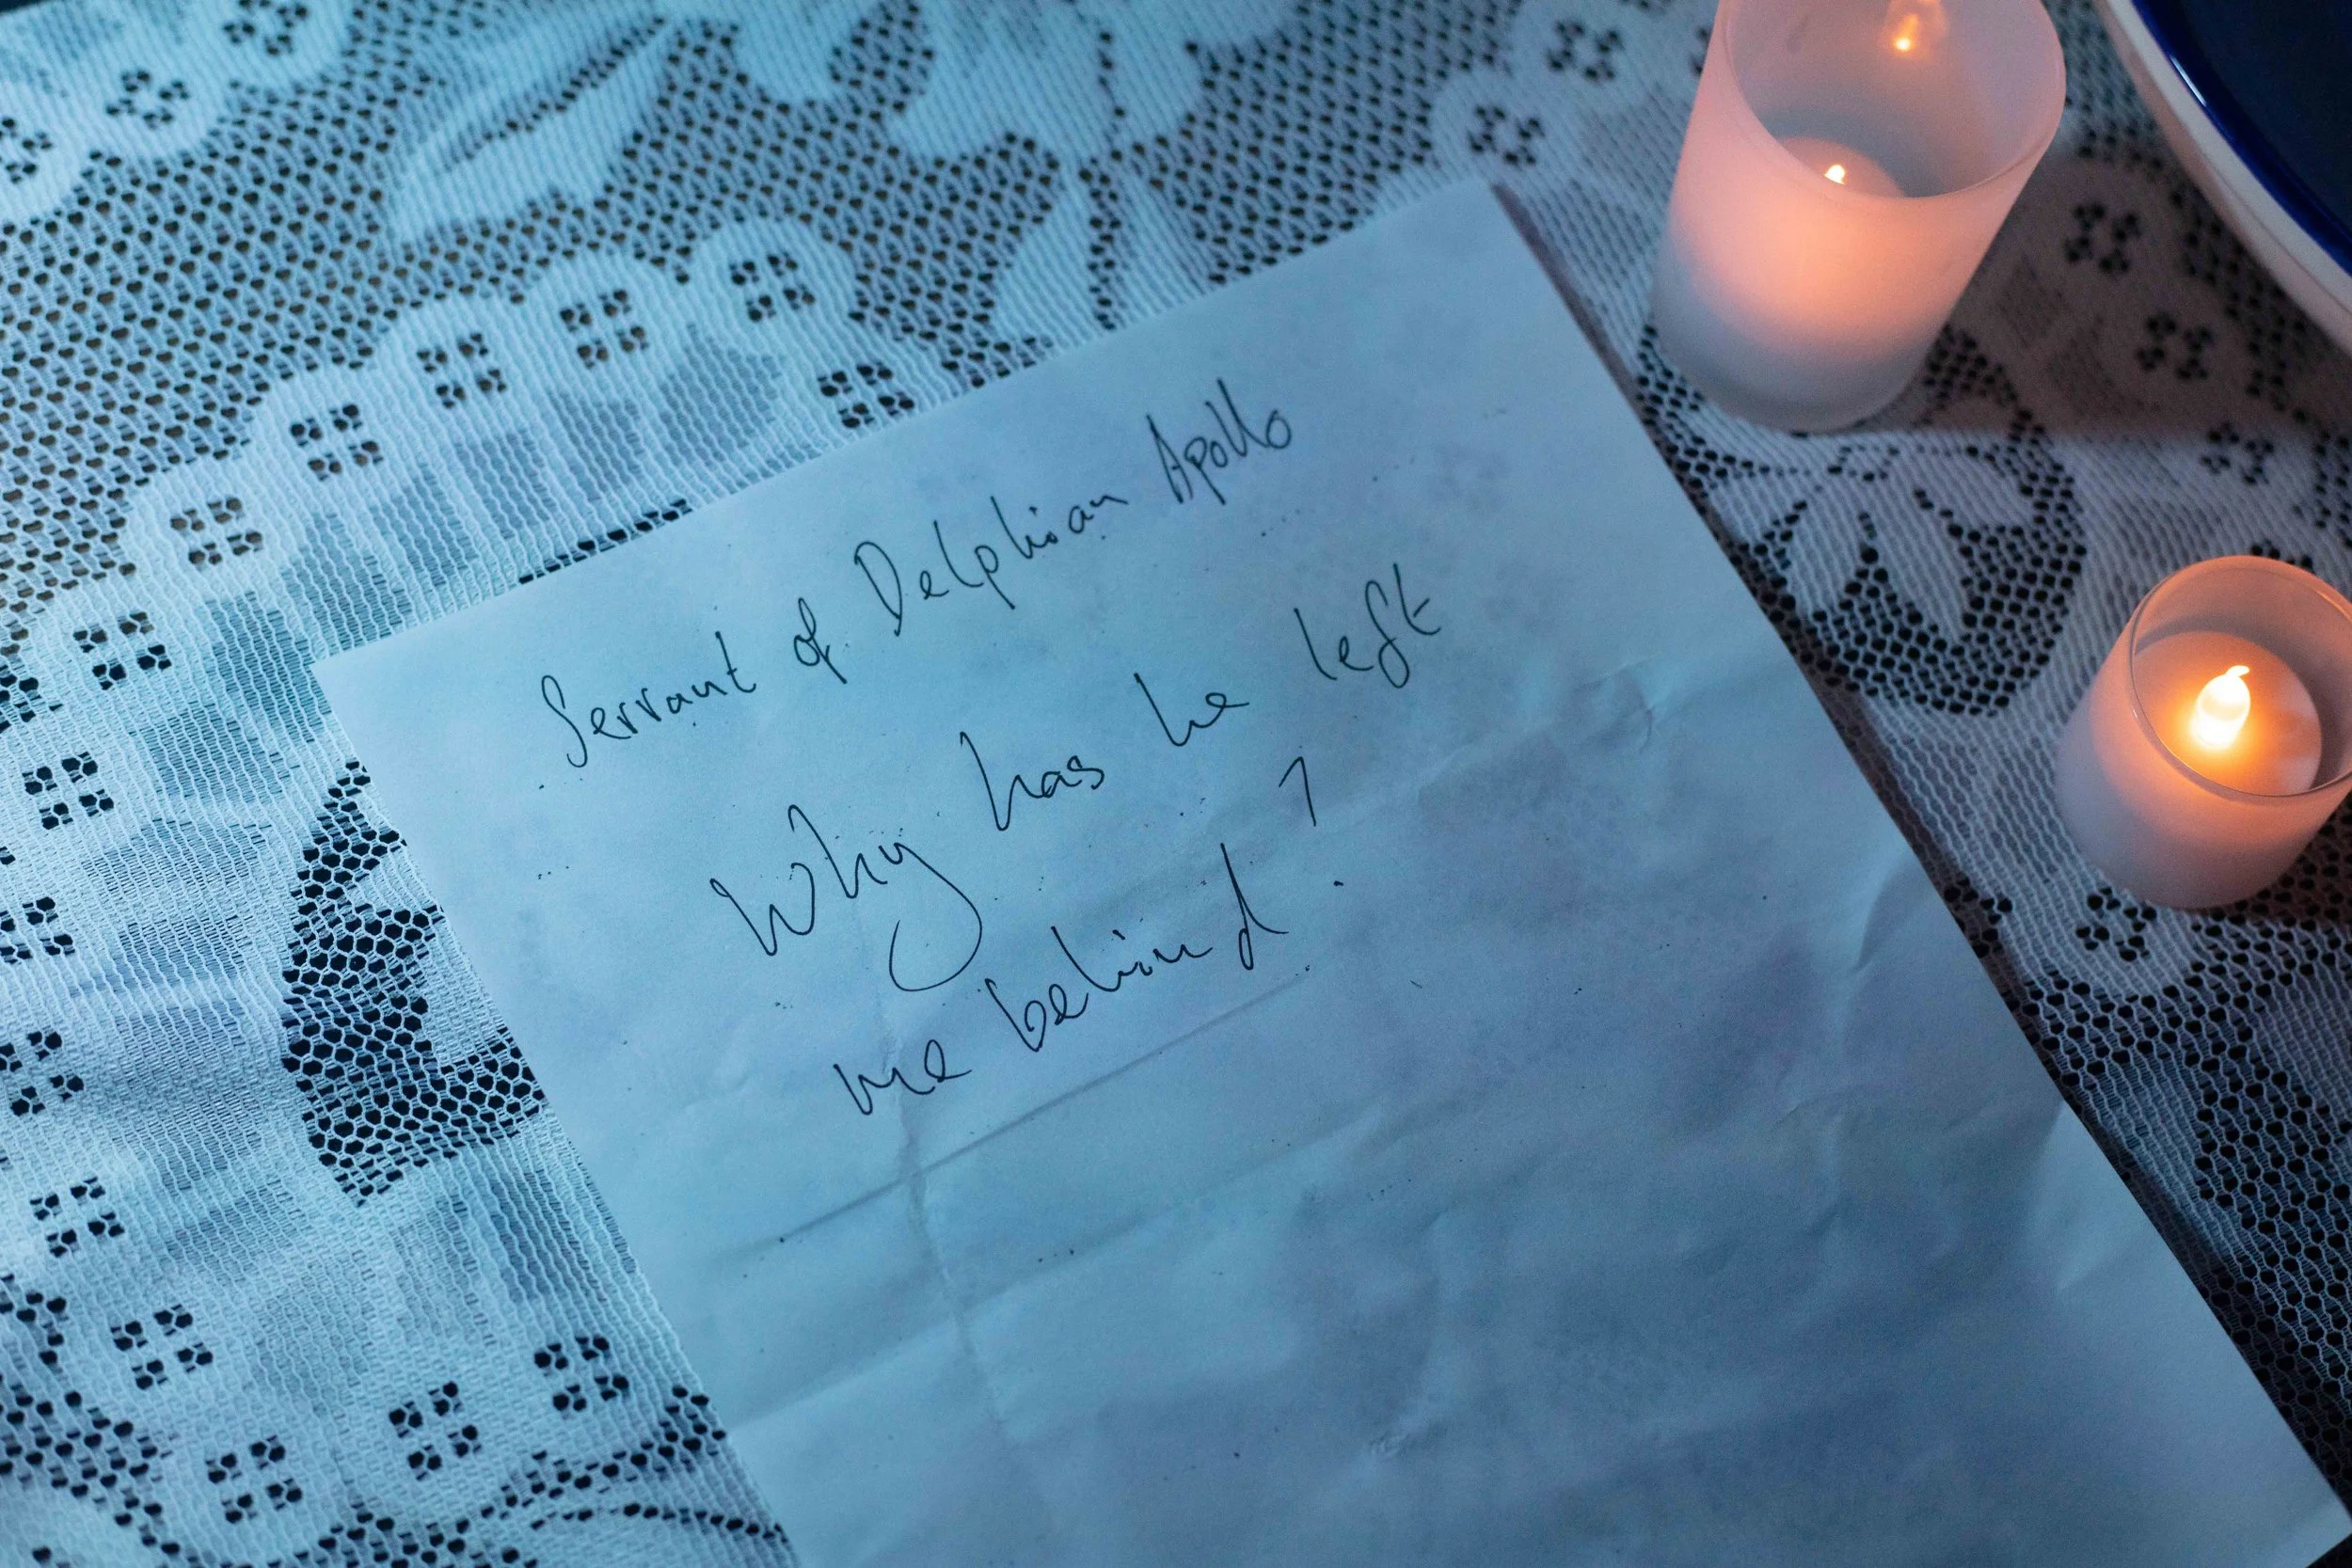 Servant of Delphian Apollo
Why has he left
me behind?